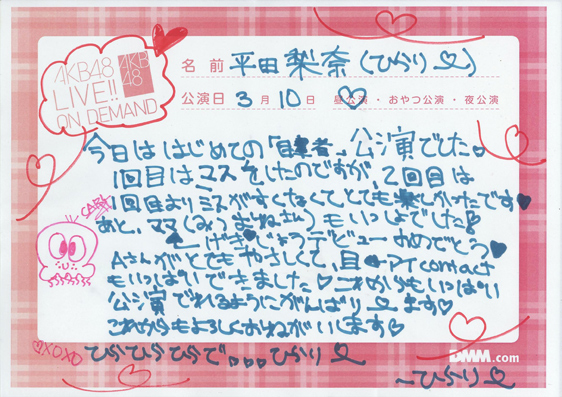 AKB48
LIVE!!
ON DEMAND
AKB
48
名前 平田梨奈(ひらり)
公演日 3月10日 昼公演・おやつ公演・夜公演
今日ははじめての「目撃者」公演でした。
1回目はミスをしたのですが、2回目は
1回目よりミスがすくなくてとても楽しかったです
あと、ママ(みつむねさん)もいっしょでした!
げきじょうデビューおめでとう
Aさんがとてもやさしくて、目←アイcontact
もいっぱいできました これからもいっぱい
公演でれるようにがんばります
これからもよろしくおねがいします
XOXO ひらひらひらで。。。ひらり
DMM.com
〜ひらり